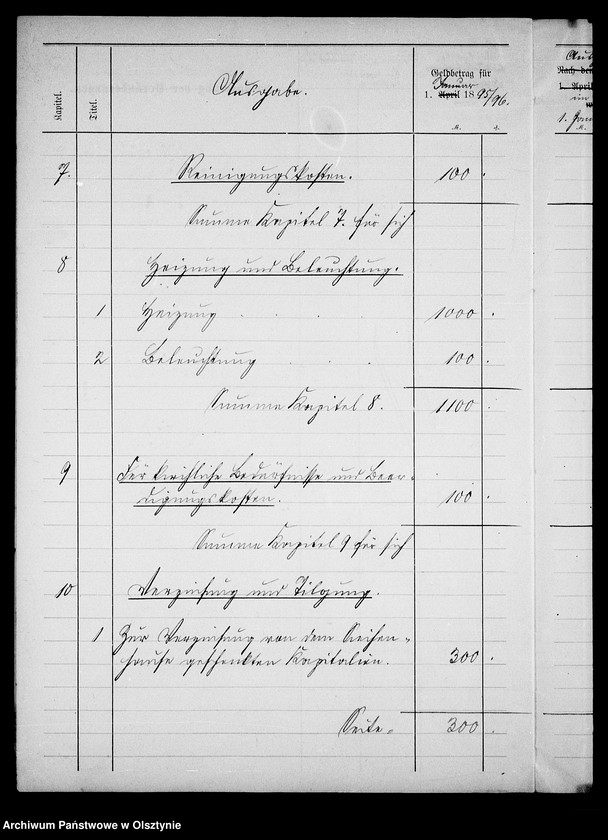 Kapitel.
Titel.
Ausgabe.
Geldbetrag für
Januar
1. April 1895/96.
M. ₰.
7. Reinigungskosten. 100 .
Summe Kapitel 7. für sich
8 Heizung und Beleuchtung.
1 Heizung . . . 1000 .
2 Beleuchtung . . . 100 .
Summe Kapitel 8. 1100 .
9 Für kirchliche Bedürfnisse und Beer-
digungskosten. 100 .
Summe Kapitel 9 für sich
10 Verzinsung und Tilgung.
1 Zur Verzinsung von dem Siechen-
hause geschenkten Kapitalien. 300 .
Seite 300 .
Nach den
1. April
1. Jan
M.
Archiwum Państwowe w Olsztynie